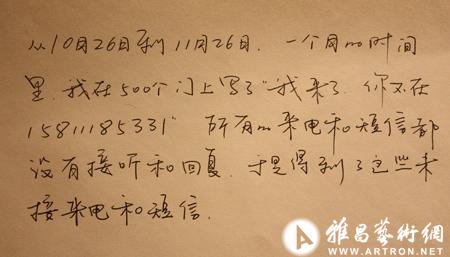 从10月26日到11月26日. 一个月的时间
里. 我在500个门上写了"我来了. 你不在
15811185331" 所有的来电和短信都
没有接听和回复. 于是得到了这些未
接来电和短信.
A 雅昌藝術網
WWW.ARTRON.NET